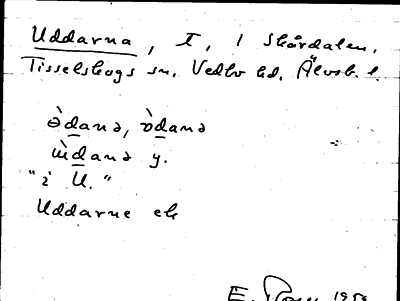 Uddarna, T, i Skårdalen,
Tisselskogs sn. Vedbo hd. Älvsb. l.
ə̀danə, ɒ̀danə
ɯ̀danə y.
"i U."
Uddarne ek
E. 1959